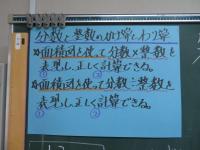 分数と整数のかけ算とわり算
面積図を使って分数×整数を
表現し、正しく計算できる。
① ②
面積図を使って分数÷整数を
表現し、正しく計算できる。
① ②